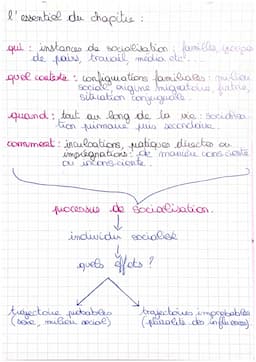 l'essentiel du chapitre :
qui : instances de socialisation : famille, groupes
de pairs, travail, média etc...
quel contexte : configurations familiales : milieu
social, origine migratoire, fratrie,
situation conjugale.
quand : tout au long de la vie : socialisa-
tion primaire puis secondaire.
comment : inculcations, pratiques directes ou
imprégnations : de manière consciente
ou inconsciente.
processus de socialisation.
individu socialisé
quels effets ?
trajectoire probables
(sexe, milieu social)
trajectoires improbables
(pluralité des influences)